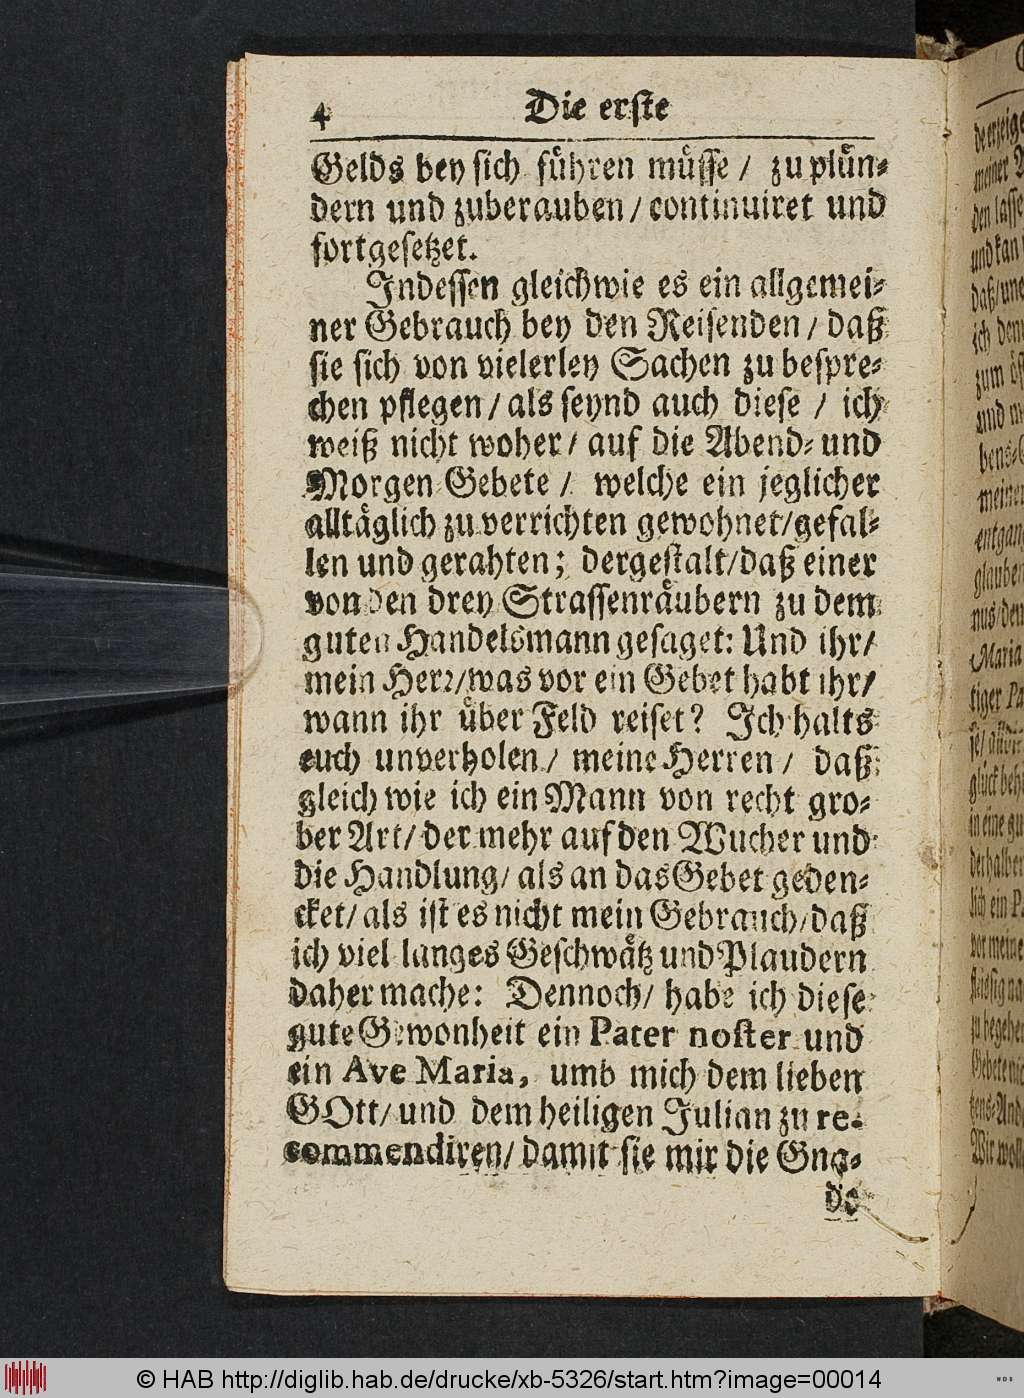 4 Die erste
Gelds bey sich führen müsse / zu plün-
dern und zuberauben / continuiret und
fortgesetzet.
Indessen gleichwie es ein allgemei-
ner Gebrauch bey den Reisenden / daß
sie sich von vielerley Sachen zu bespre-
chen pflegen / als seynd auch diese / ich
weiß nicht woher / auf die Abend- und
Morgen Gebete / welche ein jeglicher
alltäglich zu verrichten gewohnet / gefal-
len und gerahten; dergestalt / daß einer
von den drey Strassenräubern zu dem
guten Handelsmann gesaget: Und ihr /
mein Herr / was vor ein Gebet habt ihr /
wann ihr über Feld reiset? Ich halts
euch unverholen / meine Herren / daß
gleich wie ich ein Mann von recht gro-
ber Art / der mehr auf den Wucher und
die Handlung / als an das Gebet geden-
cket / als ist es nicht mein Gebrauch / daß
ich viel langes Geschwätz und Plaudern
daher mache: Dennoch / habe ich diese
gute Gewonheit ein Pater noster und
ein Ave Maria, umb mich dem lieben
GOtt / und dem heiligen Julian zu re-
commendiren / damit sie mir die Gna-
de
meiner
den lasse
und kan
ich
und
meiner
glauben
Maria
tiger
in eine gu
derhalben
lich ein
vor meine
zu begeben
Gebete
Wir
© HAB http://diglib.hab.de/drucke/xb-5326/start.htm?image=00014